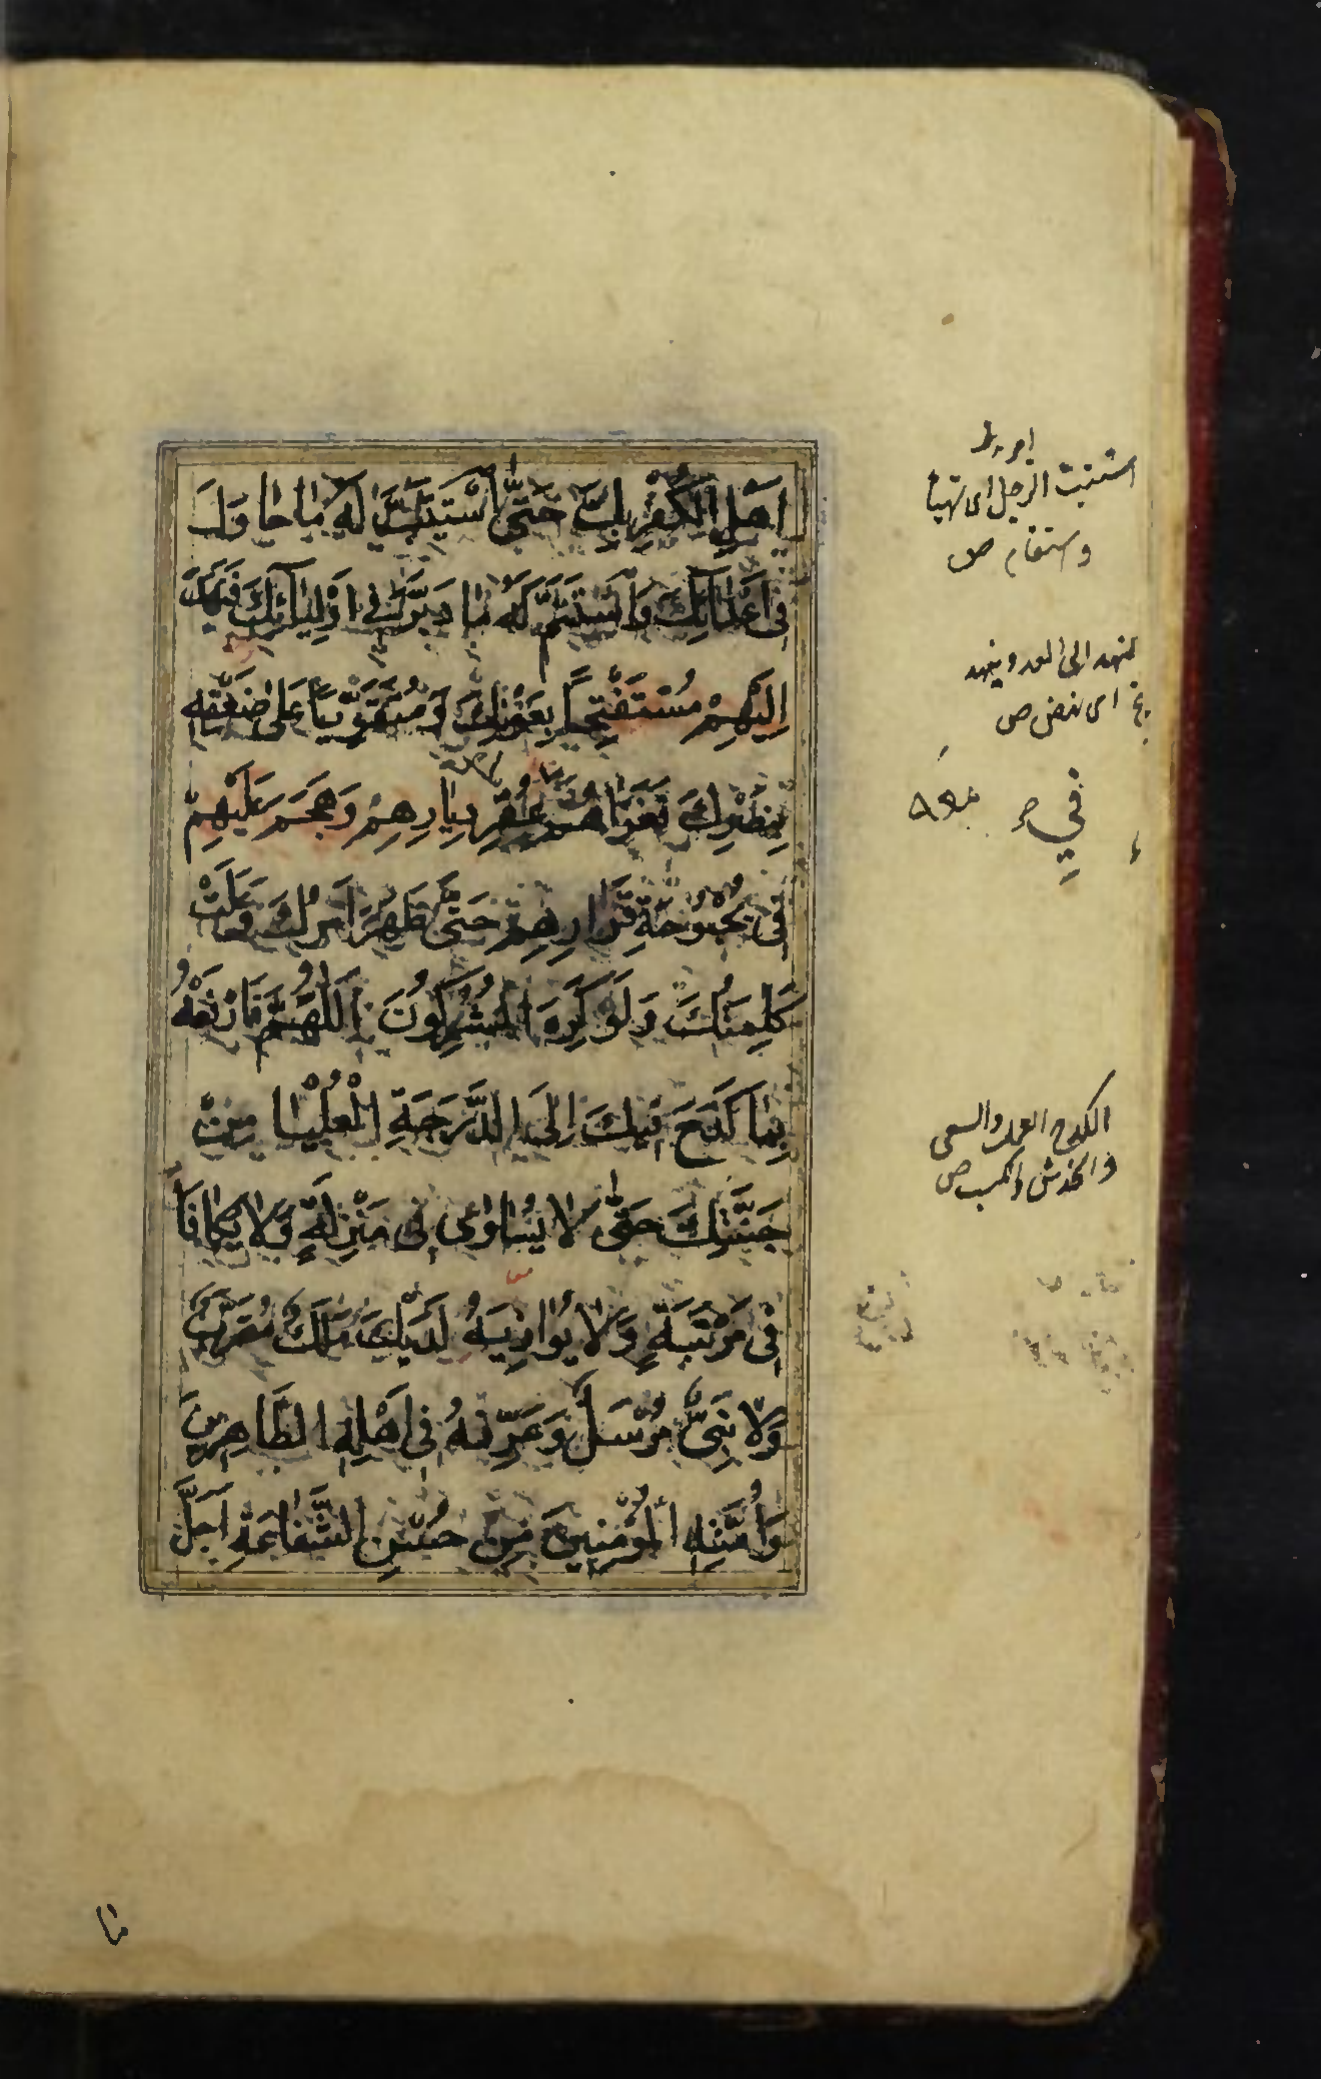 اَهْلِ الْكُفْرِ بِكَ حَتَّى اسْتَتَبَّ لَهُ مَا حَاوَلَ
فِى اَعْدَآئِكَ وَاسْتَتَمَّ لَهُ مَا دَبَّرَ فِى اَوْلِيَآئِكَ فَنَهَدَ
اِلَيْهِمْ مُسْتَفْتِحًا بِعَوْنِكَ وَمُتَقَوِّيًا عَلٰى ضَعْفِهِ
بِنَصْرِكَ فَغَزَاهُمْ فِى عُقْرِ دِيَارِهِمْ وَهَجَمَ عَلَيْهِمْ
فِى بُحْبُوحَةِ قَرَارِهِمْ حَتّٰى ظَهَرَ اَمْرُكَ وَعَلَتْ
كَلِمَتُكَ وَلَوْ كَرِهَ الْمُشْرِكُونَ اَللّٰهُمَّ فَارْفَعْهُ
بِمَا كَدَحَ فِيكَ اِلَى الدَّرَجَةِ الْعُلْيَا مِنْ
جَنَّتِكَ حَتّٰى لَا يُسَاوٰى فِى مَنْزِلَةٍ وَلَا يُكَافَأَ
فِى مَرْتَبَةٍ وَلَا يُوَازِيَهُ لَدَيْكَ مَلَكٌ مُقَرَّبٌ
وَلَا نَبِىٌّ مُرْسَلٌ وَعَرِّفْهُ فِى اَهْلِهِ الطَّاهِرِينَ
وَاُمَّتِهِ الْمُؤْمِنِينَ مِنْ حُسْنِ الشَّفَاعَةِ اَجَلَّ
استتبت الرجل اى تهيأ
واستقام ص
نهد الى العدو ينهد
اى نهض ص
فى
الكدح العمل والسعى
والخدش والكسب ص
ما